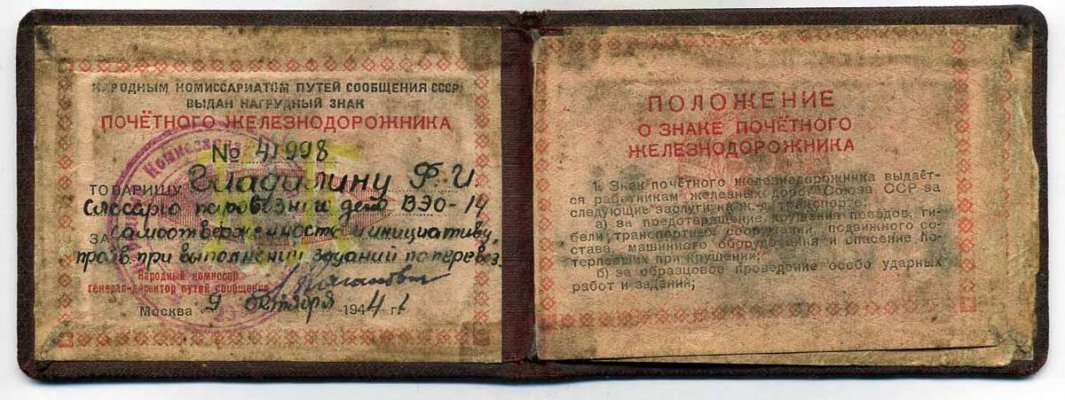 НАРОДНЫМ КОМИССАРИАТОМ ПУТЕЙ СООБЩЕНИЯ СССР
ВЫДАН НАГРУДНЫЙ ЗНАК
ПОЧЁТНОГО ЖЕЛЕЗНОДОРОЖНИКА
№ 41998
ТОВАРИЩУ Гладилину Ф. И.
Слесарю паровозный депо ВЭО-14
ЗА самоотверженность и инициативу,
при выполнении заданий по перевоз.
Народный комиссар
генерал-директор путей сообщения
Москва 9 октября 1944 г.
ПОЛОЖЕНИЕ
О ЗНАКЕ ПОЧЁТНОГО
ЖЕЛЕЗНОДОРОЖНИКА
1. Знак почётного железнодорожника выдаёт-
ся работникам железных дорог Союза ССР за
следующие заслуги на ж.-д. транспорте:
а) за предотвращение крушения поездов, ги-
бели транспортных сооружений, подвижного со-
става, машинного оборудования и спасение по-
терпевших при крушении;
б) за образцовое проведение особо ударных
работ и заданий;